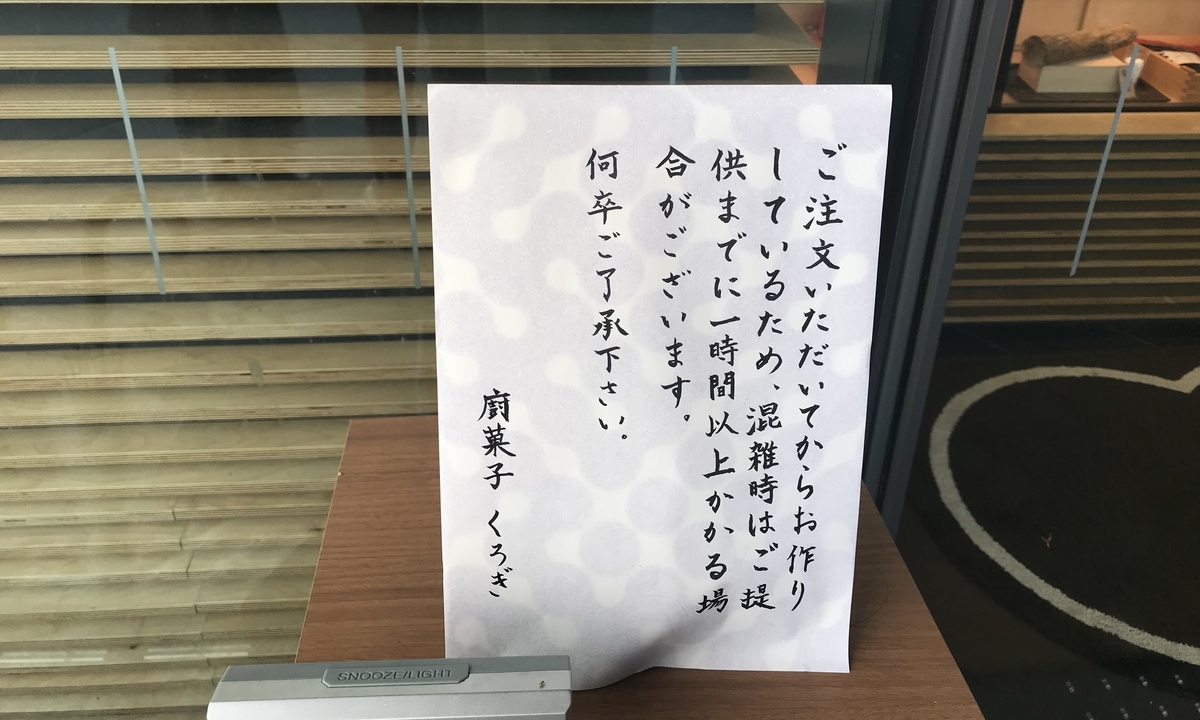 ご注文いただいてからお作り
しているため、混雑時はご提
供までに一時間以上かかる場
合がございます。
何卒ご了承下さい。
廚菓子 くろぎ
SNOOZE/LIGHT